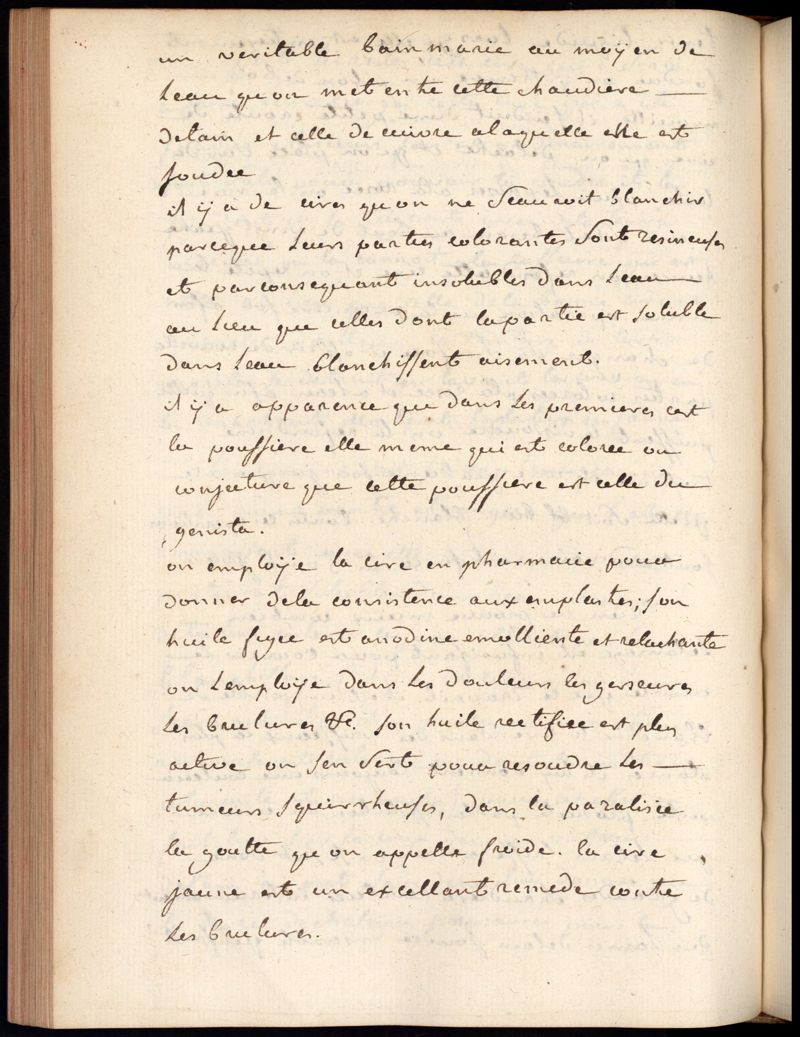 un veritable bain marie au moÿen de
Leau qu'on met entre cette chaudiere —
detain et celle de cuivre alaquelle elle est
soudee
il ÿ a de cires qu'on ne Seauroit blanchir
parceque Leurs parties colorantes Sont resineuses
et parconsequant insolubles dans Leau —
au Lieu que celles dont la partie est soluble
dans Leau blanchissent aisement.
il ÿ a apparence que dans Les premieres cest
la poussiere elle meme qui est coloree on
conjecture que cette poussiere est celle du
genista.
on emploÿe la cire en pharmacie pour
donner dela consistence aux emplastes; son
huile figee est anodine emolliente et relachante
on Lemploÿe dans Les douleurs les gerseures
Les brulures &c. son huile rectifiee est plus
active on sen Sert pour resoudre Les —
tumeurs squirrheuses, dans la paralisie
la goutte qu'on appelle froide. la cire
jaune est un excellant remede contre
Les brulures.